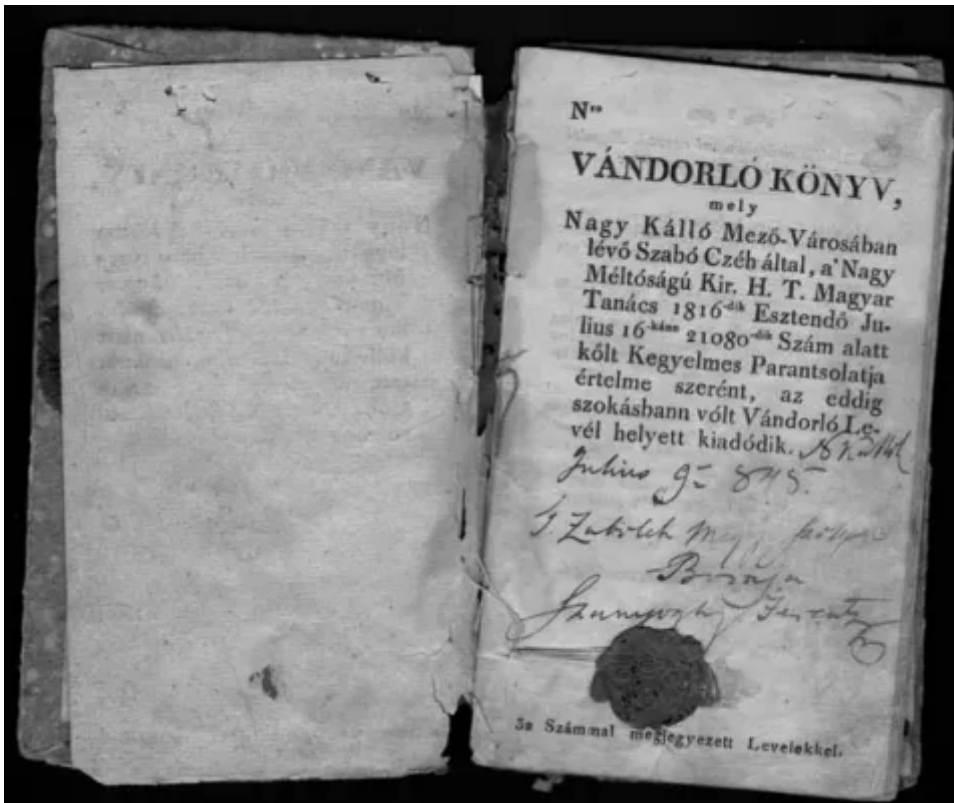 Nro
VÁNDORLÓ KÖNYV,
mely
Nagy Kálló Mező-Városában
lévő Szabó Czéh által, a' Nagy
Méltóságú Kir. H. T. Magyar
Tanács 1816-dik Esztendő Ju-
lius 16-kánn 21080-dik Szám alatt
kőlt Kegyelmes Parantsolatja
értelme szerént, az eddig
szokásbann vólt Vándorló Le-
vél helyett kiadódik.
Julius 9- 845.
Birája
32 Számmal megjegyezett Levelekkel.